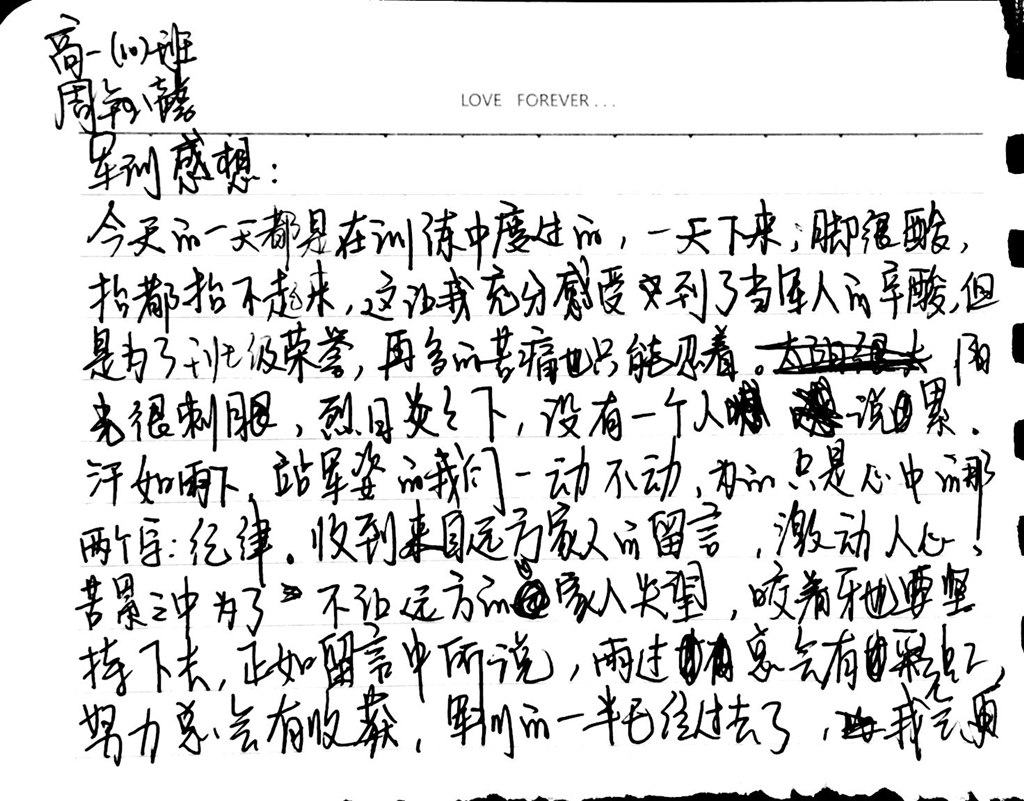 高一(10)班
周
LOVE FOREVER...
军训感想:
今天的一天都是在训练中度过的,一天下来,脚很酸,
抬都抬不起来,这让我充分感受到了当军人的辛酸,但
是为了班级荣誉,再多的苦痛也只能忍着。阳
光很刺眼,烈日炎炎下,没有一个人说累.
汗如雨下,站军姿的我们一动不动,为的只是心中的那
两个字:纪律。收到来自远方家人的留言,激动人心,
苦累之中为了不让远方的家人失望,咬着牙也要坚
持下去,正如留言中所说,雨过总会有彩虹,
努力总会有收获,军训的一半已经过去了,我